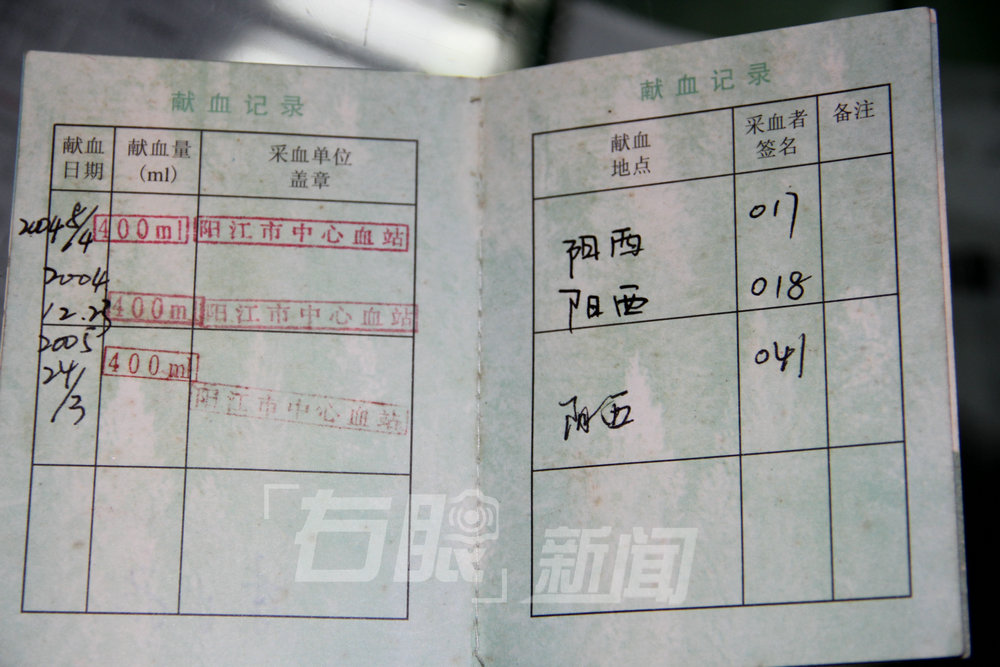 献血记录
献血日期 献血量(ml) 采血单位盖章
2004 8/4 400ml 阳江市中心血站
2004 12.23 400ml 阳江市中心血站
2005 24/3 400ml 阳江市中心血站
献血记录
献血地点 采血者签名 备注
阳西 017
阳西 018
阳西 041
「右眼」新闻